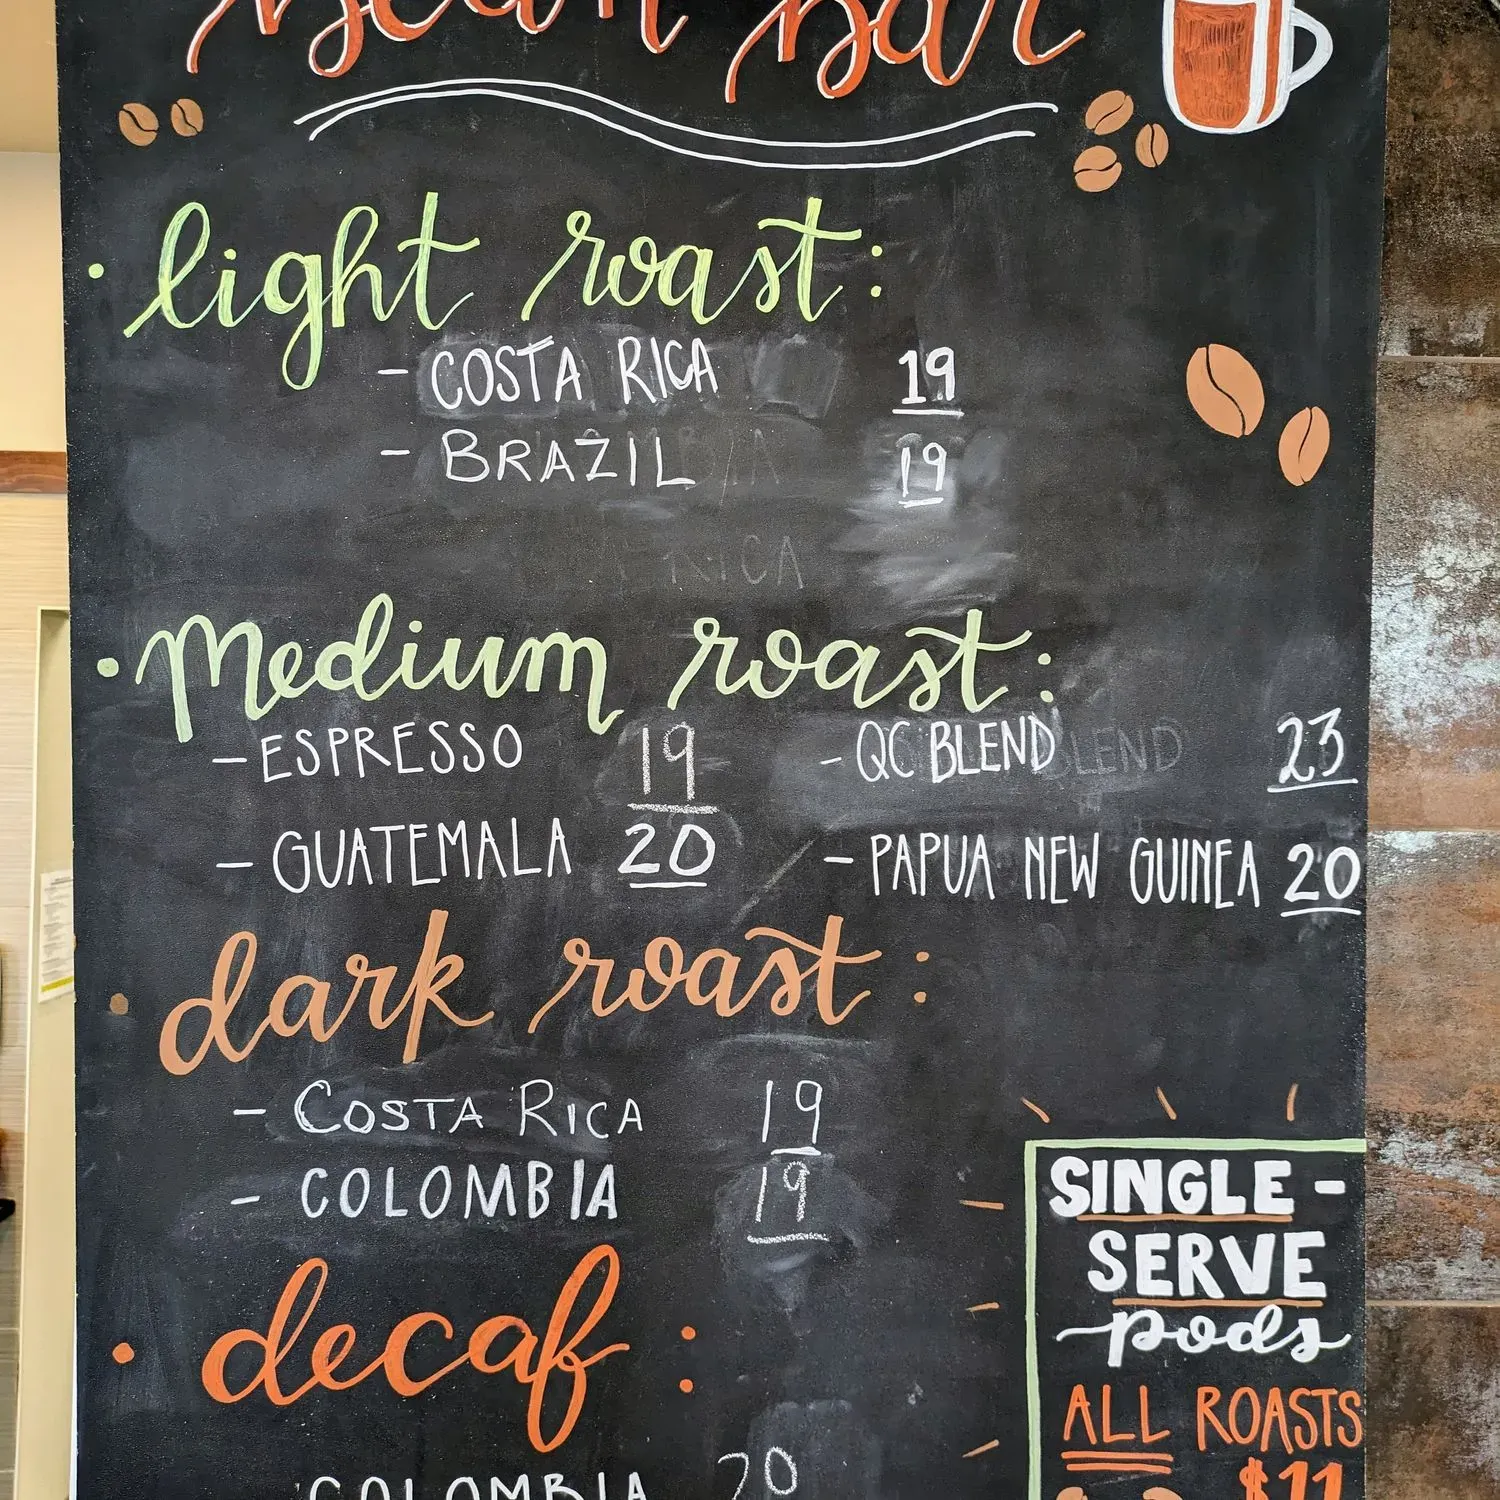 Bean Bar
• light roast:
- COSTA RICA 19
- BRAZIL 19
• Medium roast:
- ESPRESSO 19 - QC BLEND 23
- GUATEMALA 20 - PAPUA NEW GUINEA 20
• dark roast:
- COSTA RICA 19
- COLOMBIA 19
• decaf:
COLOMBIA 20
SINGLE-
SERVE
pods
ALL ROASTS
$11